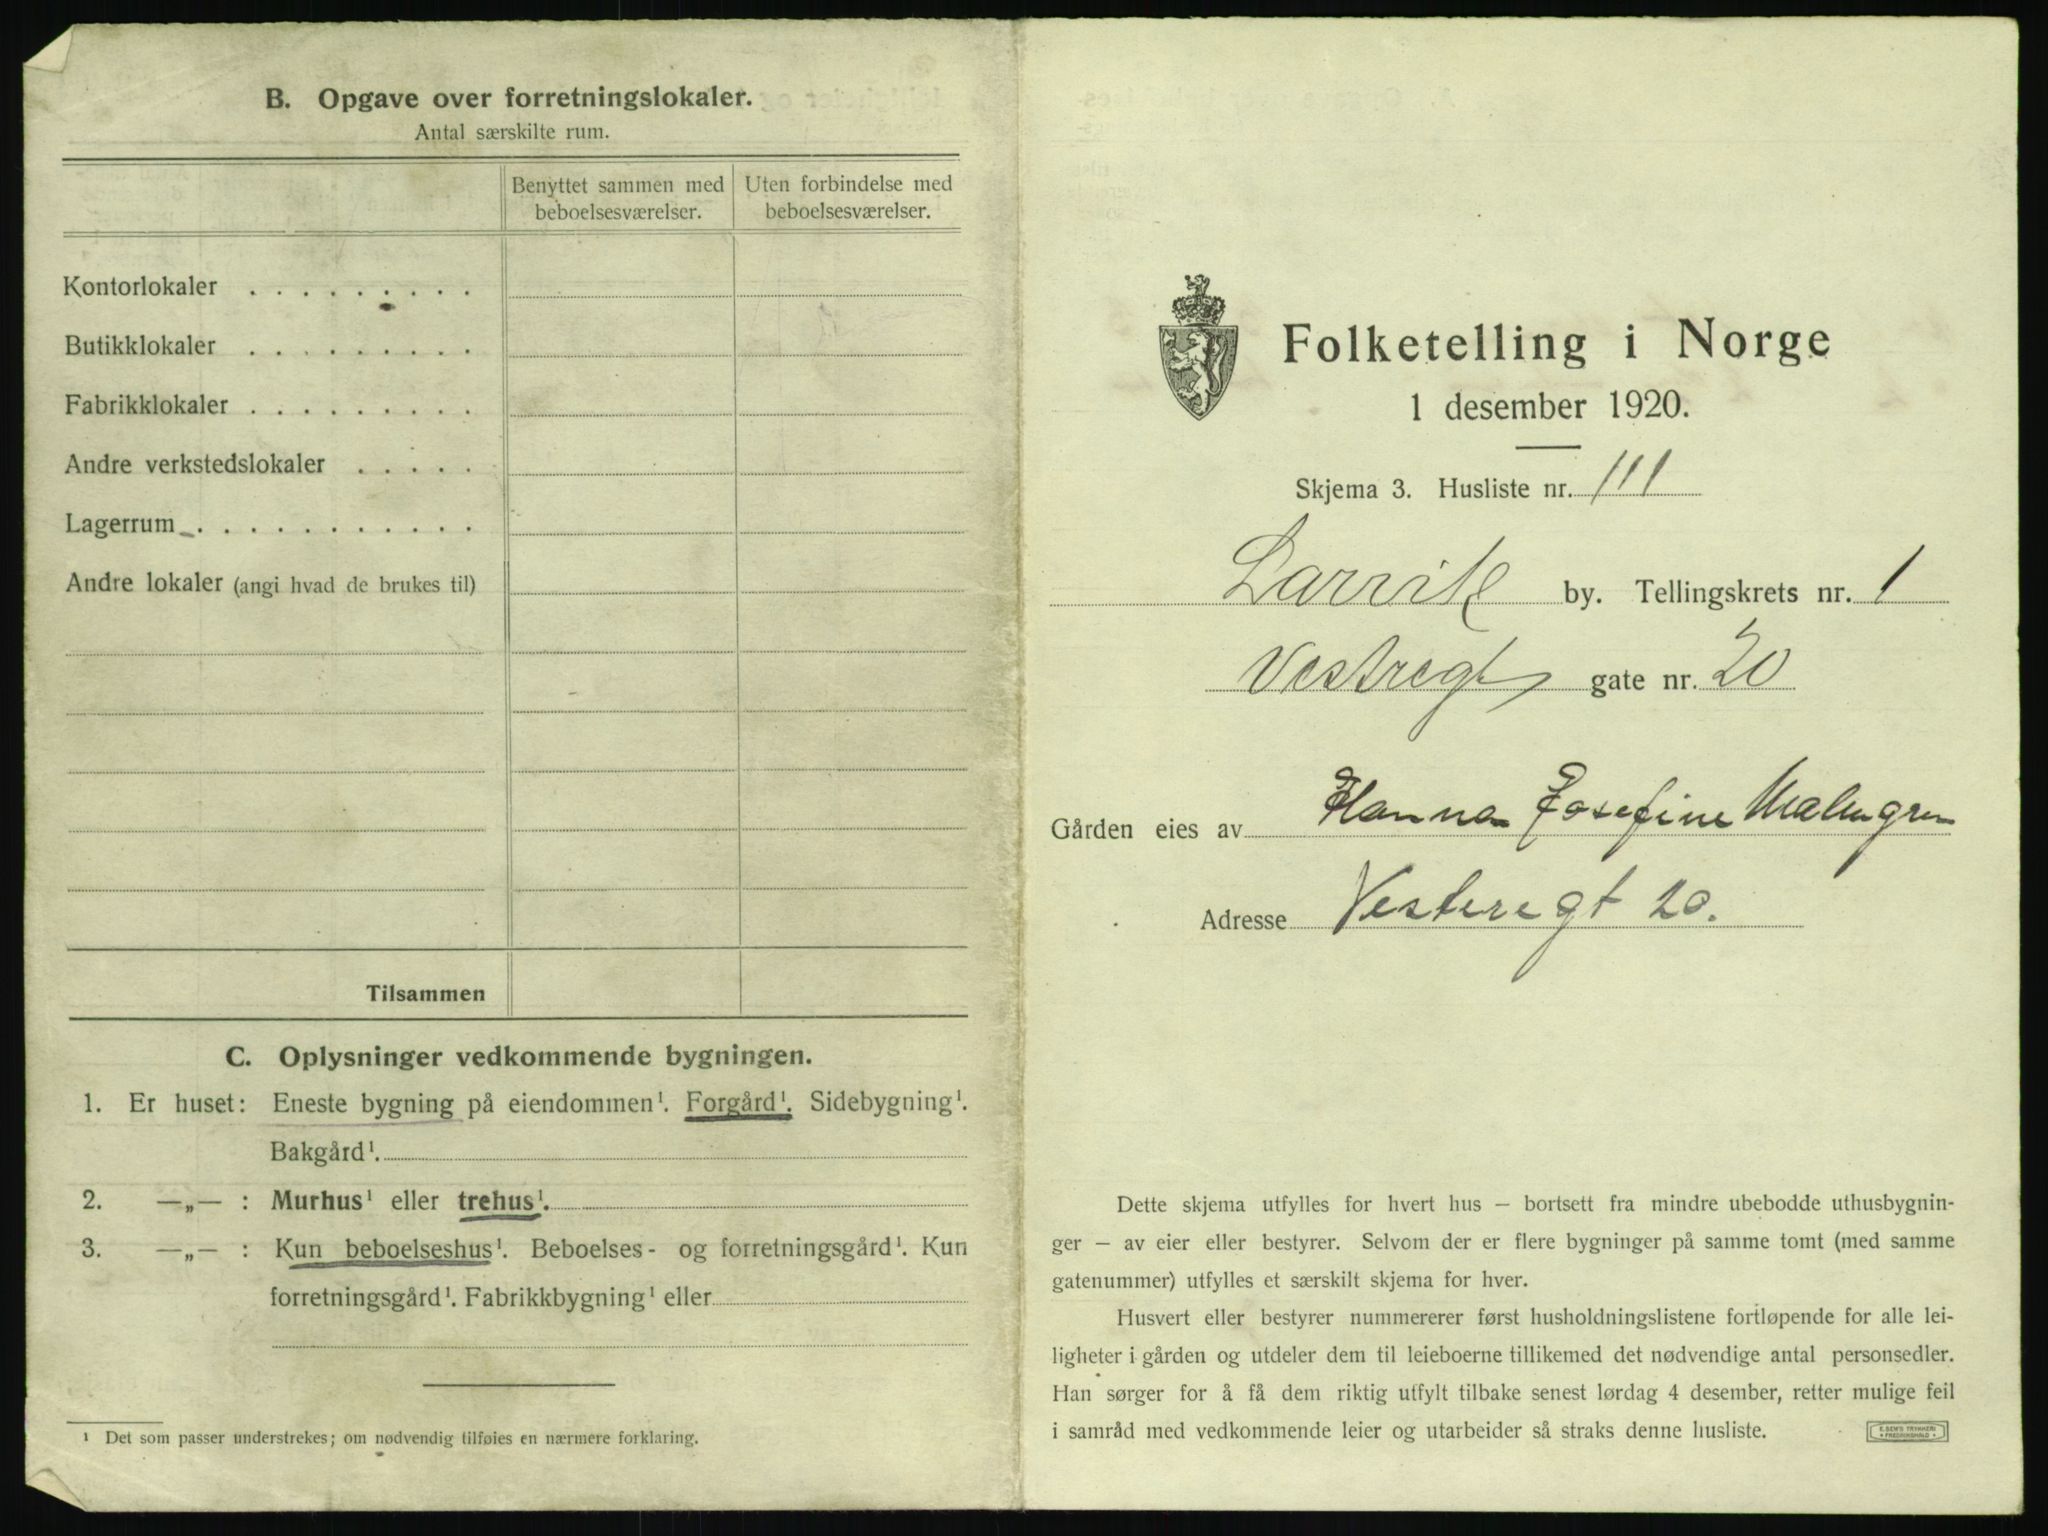 B. Opgave over forretningslokaler.
Antal særskilte rum.
Benyttet sammen med beboelsesværelser.
Uten forbindelse med beboelsesværelser.
Kontorlokaler . . . . . . . . .
Butikklokaler . . . . . . . . .
Fabrikklokaler . . . . . . . . .
Andre verkstedslokaler . . . . .
Lagerrum . . . . . . . . . . .
Andre lokaler (angi hvad de brukes til)
Tilsammen
C. Oplysninger vedkommende bygningen.
1. Er huset: Eneste bygning på eiendommen¹. Forgård¹. Sidebygning¹.
Bakgård¹.
2. —„— : Murhus¹ eller trehus¹.
3. —„— : Kun beboelseshus¹. Beboelses- og forretningsgård¹. Kun
forretningsgård¹. Fabrikkbygning¹ eller
¹ Det som passer understrekes; om nødvendig tilføies en nærmere forklaring.
Folketelling i Norge
1 desember 1920.
Skjema 3. Husliste nr. 111
Larvik by. Tellingskrets nr. 1
Vestregt gate nr. 20
Gården eies av Hanna Josefine Malmgren
Adresse Vesteregt 20.
Dette skjema utfylles for hvert hus – bortsett fra mindre ubebodde uthusbygnin-
ger – av eier eller bestyrer. Selvom der er flere bygninger på samme tomt (med samme
gatenummer) utfylles et særskilt skjema for hver.
Husvert eller bestyrer nummererer først husholdningslistene fortløpende for alle lei-
ligheter i gården og utdeler dem til leieboerne tillikemed det nødvendige antal personsedler.
Han sørger for å få dem riktig utfylt tilbake senest lørdag 4 desember, retter mulige feil
i samråd med vedkommende leier og utarbeider så straks denne husliste.
E. SEM'S TRYKKERI
FREDRIKSHALD